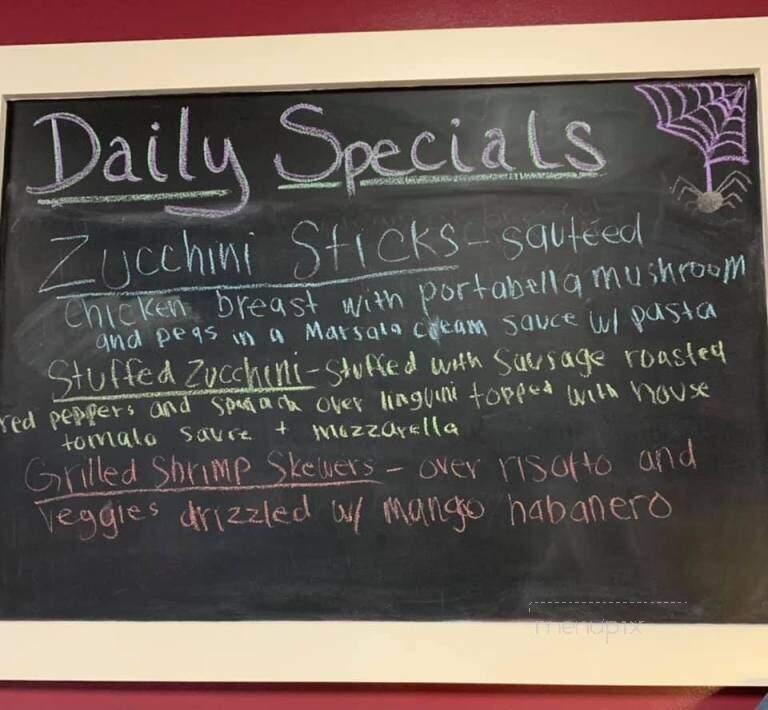 Daily Specials
Zucchini Sticks - sauteed
chicken breast with portabella mushroom
and peas in a Marsala cream sauce w/ pasta
Stuffed Zucchini - stuffed with sausage roasted
red peppers and spinach over linguini topped with house
tomato sauce + mozzarella
Grilled Shrimp Skewers - over risotto and
veggies drizzled w/ mango habanero
menupix